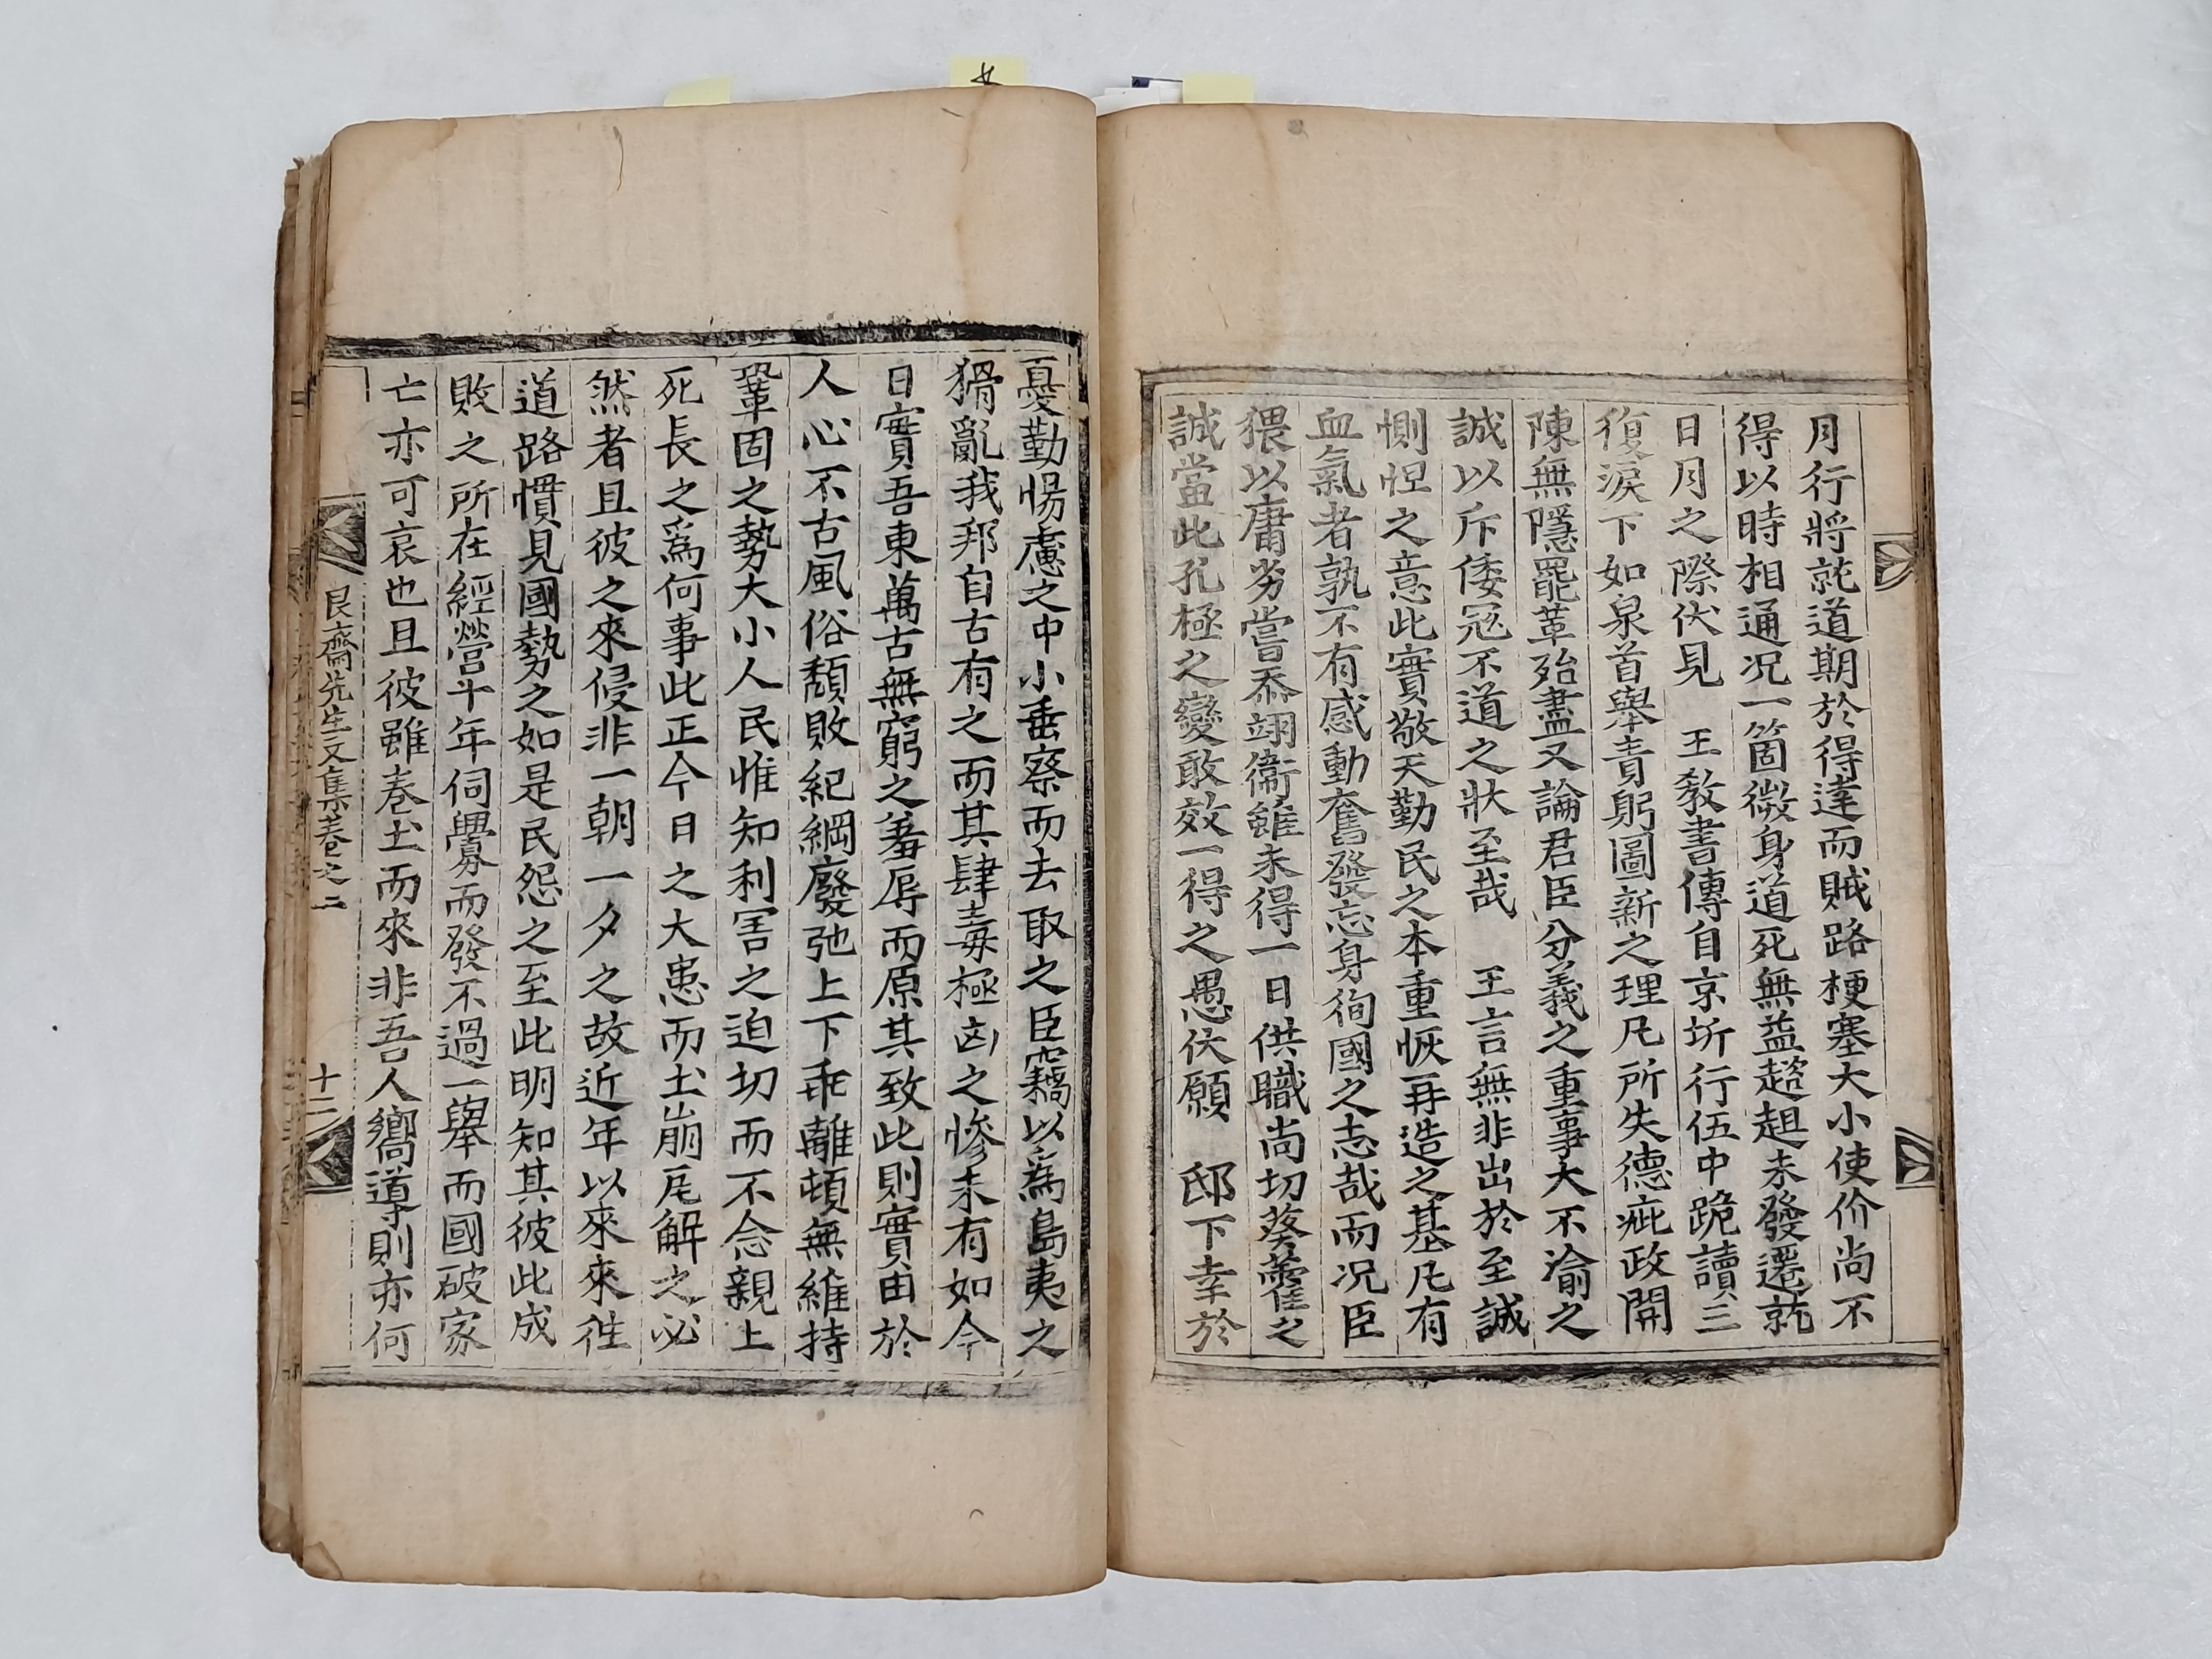 月行將就道期於得達而賊路梗塞大小使价尚不
得以時相通况一箇微身道死無益趦趄未發遷就
日月之際伏見 王教書傳自京圻行伍中跪讀三
復淚下如泉首舉責躬圖新之理凡所失德疵政開
陳無隱罷革殆盡又論君臣分義之重事大不渝之
誠以斥倭冦不道之狀至哉 王言無非出於至誠
惻怛之意此實敬天勤民之本重恢再造之基凡有
血氣者孰不有感動奮發忘身徇國之志哉而况臣
猥以庸劣嘗忝翊衞雖未得一日供職尚切葵藿之
誠當此孔極之變敢效一得之愚伏願 邸下幸於
憂勤惕慮之中小垂察而去取之臣竊以爲島夷之
猾亂我邦自古有之而其肆毒極凶之慘未有如今
日實吾東萬古無窮之羞辱而原其致此則實由於
人心不古風俗頹敗紀綱廢弛上下乖離頓無維持
鞏固之勢大小人民惟知利害之迫切而不念親上
死長之爲何事此正今日之大患而土崩瓦解之必
然者且彼之來侵非一朝一夕之故近年以來來徃
道路慣見國勢之如是民怨之至此明知其彼此成
敗之所在經營十年伺釁而發不過一舉而國破家
亡亦可哀也且彼雖卷土而來非吾人嚮導則亦何
艮齋先生文集卷之二
十二